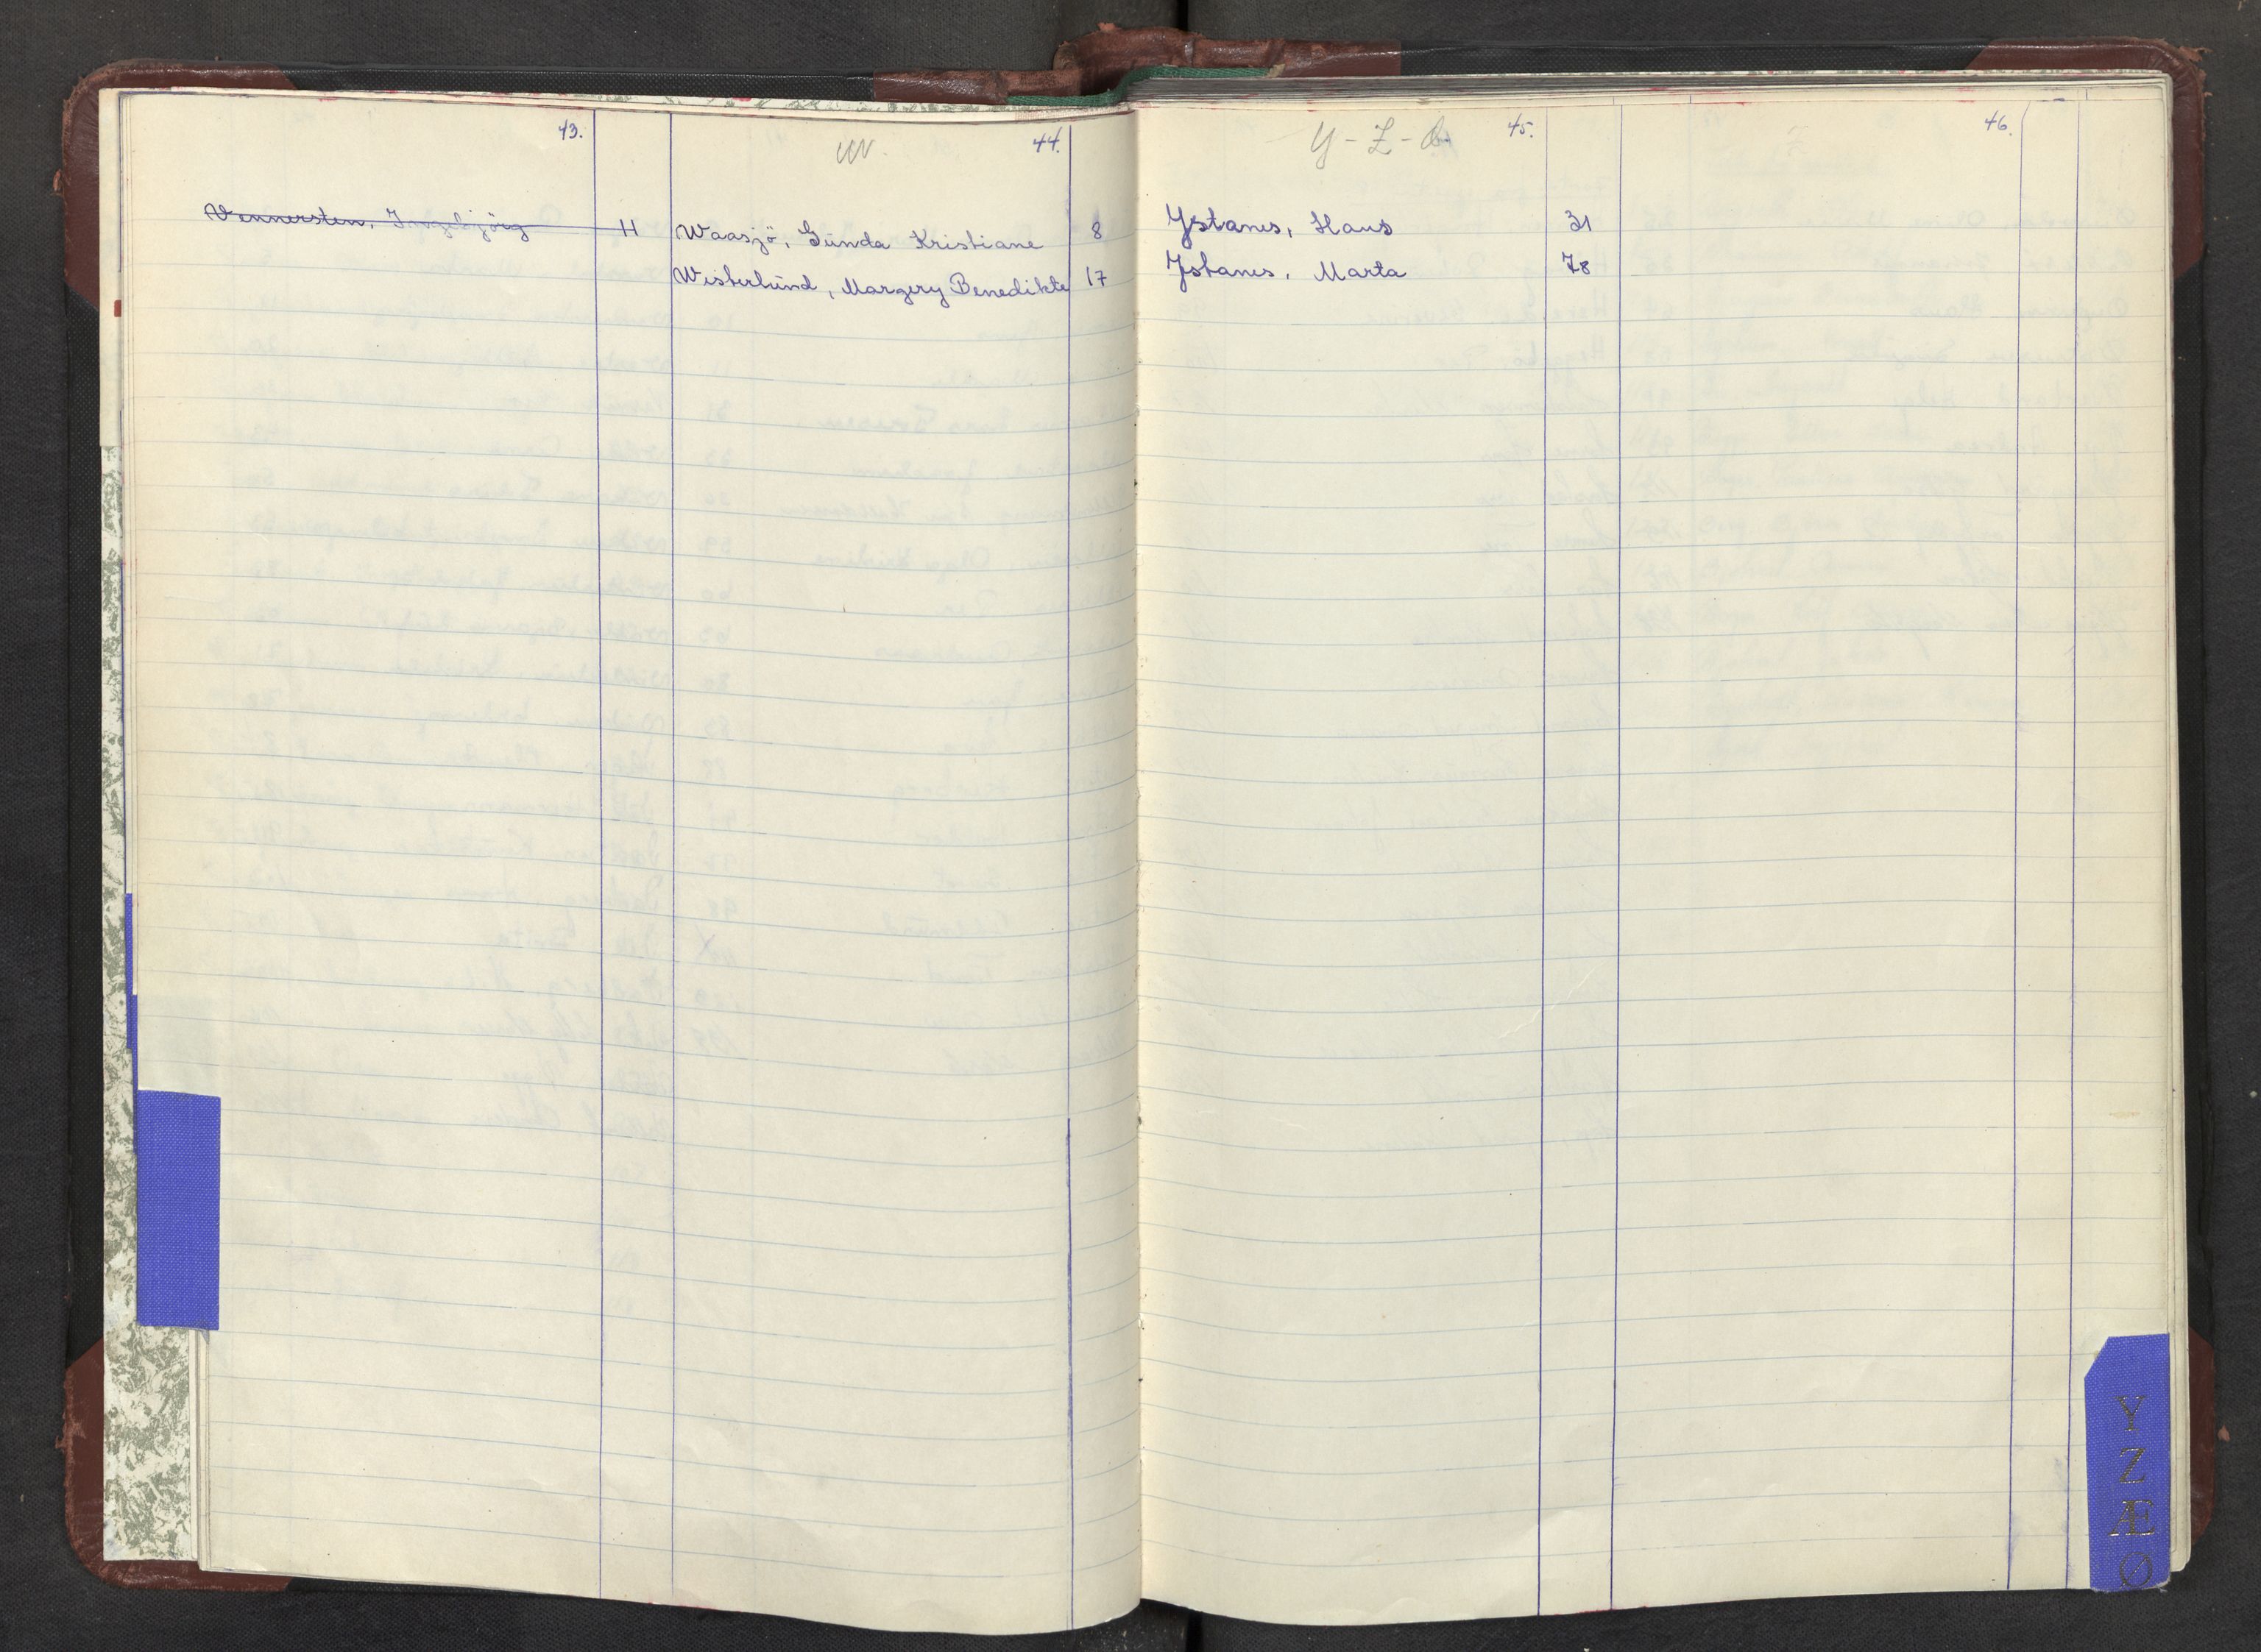 43.
Vennersten, Ingebjörg H
W. 44.
Waasjö, Gunda Kristiane 8
Westerlund, Margery Benedikte 17
Y - Z - 45.
Ystanes, Hans 31
Ystanes, Marta 78
46.
Y
Z
Æ
Ø